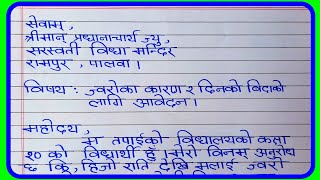 सेवामा,
श्रीमान् प्रधानाचार्य ज्यु,
सरस्वती विद्या मन्दिर
रामपुर, पालवा।
विषय: ज्वरोका कारण २ दिनको विदाको
लागि आवेदन।
महोदय,
म तपाईको विद्यालयको कक्षा
१० को विद्यार्थी हुँ। मेरो विनम्र अनुरोध
छ कि, हिजो राति देखि मलाई ज्वरो